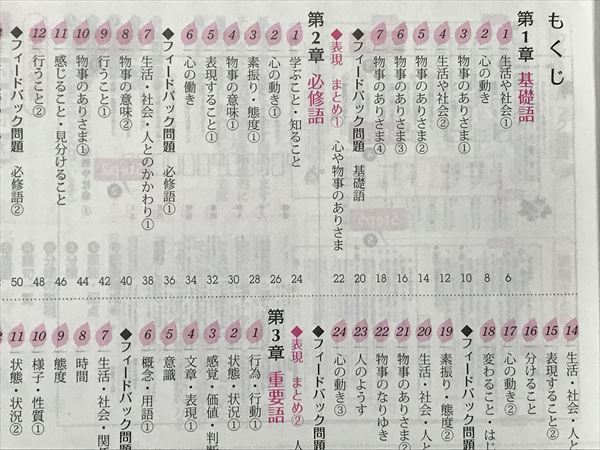 もくじ
第1章 基礎語
1 生活や社会① 6
2 心の動き 8
3 物事のありさま① 10
4 生活や社会② 12
5 物事のありさま② 14
6 物事のありさま③ 16
7 物事のありさま④ 18
◆フィードバック問題 基礎語 20
◆表現 まとめ① 心や物事のありさま 22
第2章 必修語
1 学ぶこと・知ること 24
2 心の動き① 26
3 素振り・態度① 28
4 物事の意味① 30
5 表現すること① 32
6 心の働き 34
◆フィードバック問題 必修語① 36
7 生活・社会・人とのかかわり① 38
8 物事の意味② 40
9 行うこと① 42
10 物事のありさま① 44
11 感じること・見分けること 46
12 行うこと② 48
◆フィードバック問題 必修語② 50
14 生活・社会・人と
15 表現すること②
16 分けること
17 心の動き②
18 変わること・はじ
◆フィードバック問題
19 素振り・態度②
20 生活・社会・人と
21 物事のありさま②
22 物事のなりゆき
23 人のようす
24 心の動き③
◆フィードバック問題
◆表現 まとめ② 人
第3章 重要語
1 行為・行動①
2 状態・状況①
3 感覚・価値・判断
4 文章・表現①
5 意識
6 概念・用語①
◆フィードバック問題
7 生活・社会・関係
8 時間
9 態度
10 様子・性質①
11 状態・状況②